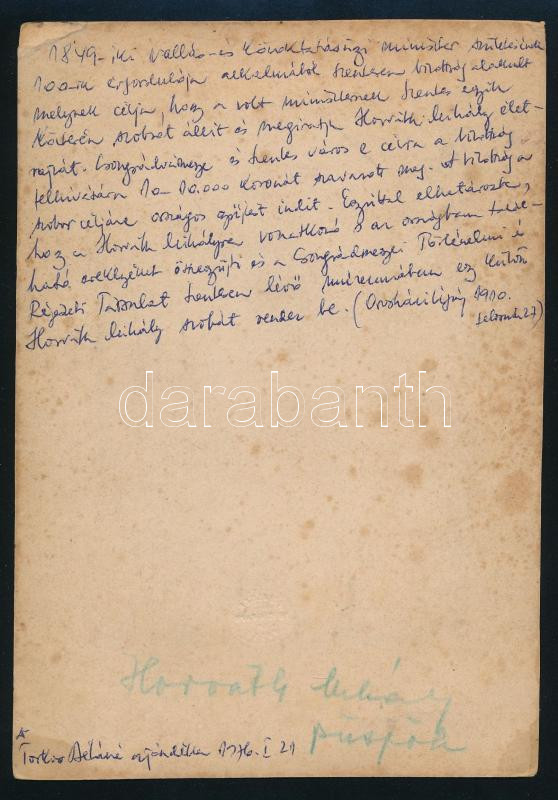 1849-iki vallás- és közoktatásügyi miniszter születésének
100-ik évfordulója alkalmából Szentesen bizottság alakult
melynek célja, hogy a volt miniszternek Szentes egyik
közterén szobrot állít és megiratja Horváth Mihály élet-
rajzát. Csongrádvármegye és Szentes város e célra a bizottság
felhívására 10-10.000 koronát szavazott meg. A bizottság a
szobor céljára országos gyűjtést indít. Egyúttal elhatározta,
hogy a Horváth Mihályra vonatkozó s az országban
ható ereklyéket összegyűjti és a Csongrádmegyei Történelmi és
Régészeti Társulat Szentesen lévő múzeumában egy külön
Horváth Mihály szobát rendez be. (Orosházi Ujság 1910.
27)
darabanth
Horváth Mihály
püspök
ajándéka 1976. I 21